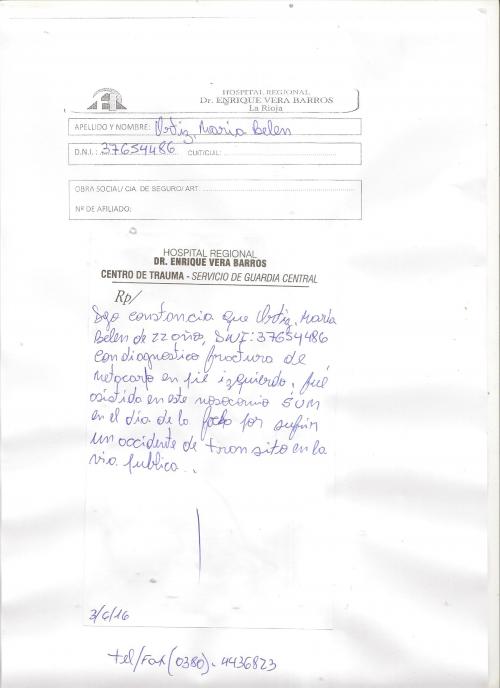 HOSPITAL REGIONAL
Dr. ENRIQUE VERA BARROS
La Rioja
APELLIDO Y NOMBRE: Ortiz, Maria Belen
D.N.I.: 37654486 CUIT/CUIL:
OBRA SOCIAL/ CIA. DE SEGURO/ ART.
Nº DE AFILIADO:
HOSPITAL REGIONAL
DR. ENRIQUE VERA BARROS
CENTRO DE TRAUMA - SERVICIO DE GUARDIA CENTRAL
Rp/
Dejo constancia que Ortiz, María
Belen de 22 años, DNI: 37654486
con diagnostico fractura de
metacarpo en pie izquierdo, fué
asistida en este nosocomio
en el dia de la fecha por sufrir
un accidente de transito en la
via publica..
3/6/16
tel/Fax (0380). 4436823